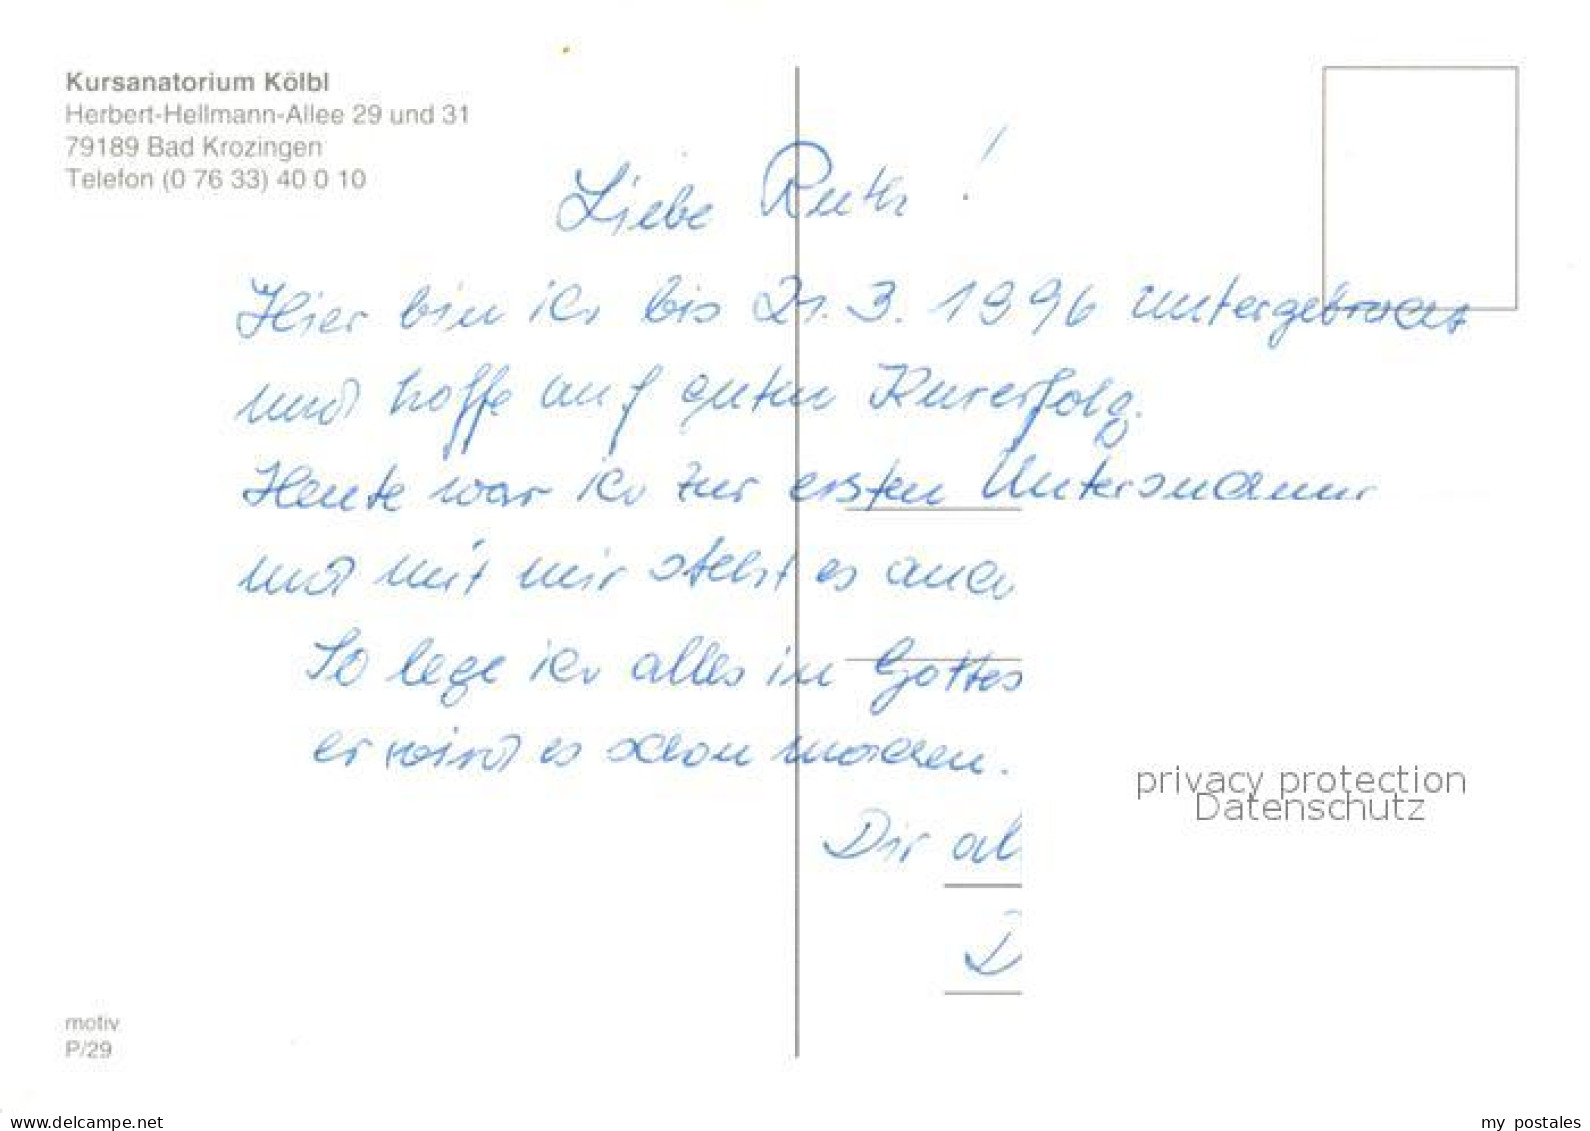 Kursanatorium Kölbl
Herbert-Hellmann-Allee 29 und 31
79189 Bad Krozingen
Telefon (0 76 33) 40 0 10
Liebe Ruth!
Hier bin ich bis 21.3.1996 untergebracht
und hoffe auf guten Kurerfolg.
Heute war ich zur ersten Untersuchung
und mit mir steht es auch
So lege ich alles in Gottes
er wird es schon machen.
Dir al
D
privacy protection
Datenschutz
motiv
P/29
www.delcampe.net
my_postales